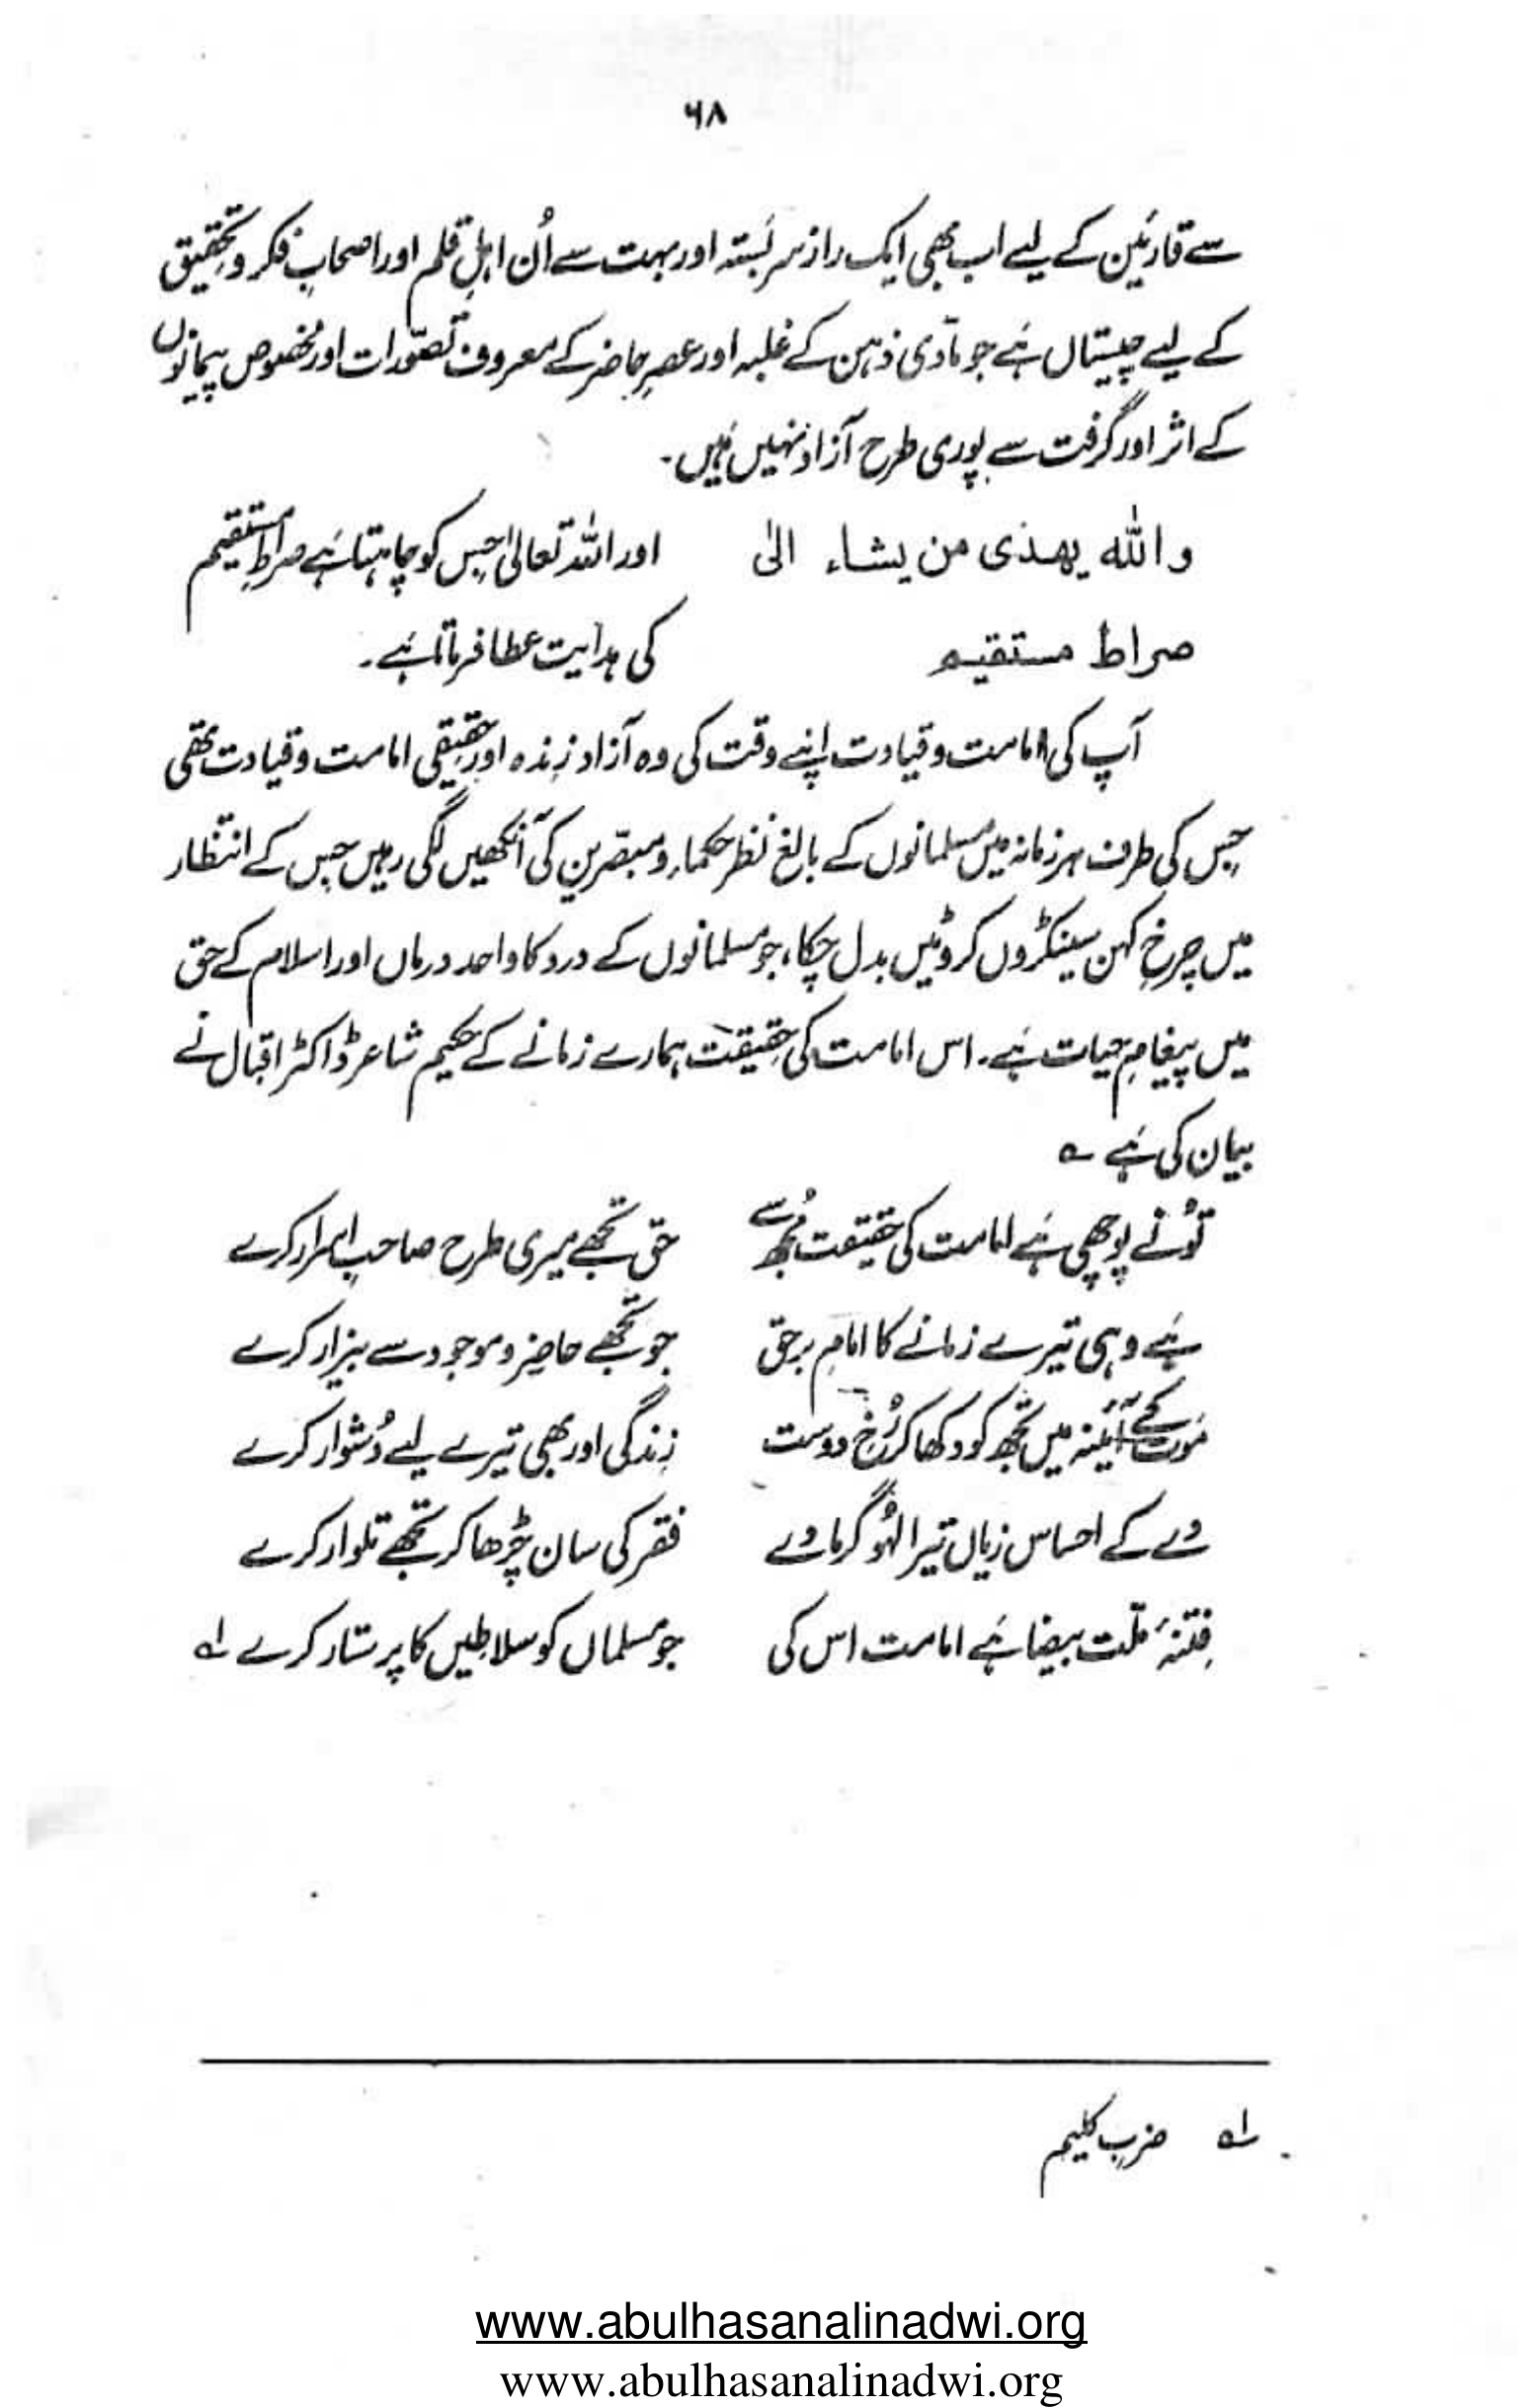 ۶۸
سے قارئین کے لیے اب بھی ایک راز سر بستہ اور بہت سے اُن اہلِ قلم اور اصحابِ فکر و تحقیق
کے لیے چیستاں ہَے جو مادّی ذہن کے غلبہ اور عصرِ حاضر کے معروف تصوّرات اور مخصوص پیمانوں
کے اثر اور گرفت سے پوری طرح آزاد نہیں ہَیں۔
واللّٰہ یھدی من یشاء الیٰ اور اللہ تعالیٰ جِس کو چاہتا ہَے صراطِ مستقیم
صراط مستقیم کی ہدایت عطا فرماتا ہَے۔
آپ کی امامت و قیادت اپنے وقت کی وہ آزاد زِندہ اور حقیقی امامت و قیادت تھی
جِس کی طرف ہر زمانہ میں مسلمانوں کے بالغ نظر حکماء و مبصّرین کی آنکھیں لگی رہیں جس کے انتظار
میں چرخِ کہن سینکڑوں کروٹیں بدل چکا، جو مسلمانوں کے درد کا واحد درماں اور اسلام کے حق
میں پیغامِ حیات ہَے۔ اس امامت کی حقیقت ہمارے زمانے کے حکیم شاعر ڈاکٹر اقبال نے
بیان کی ہَے ؎
تُو نے پوچھی ہَے امامت کی حقیقت مُجھ سے حق تجھے میری طرح صاحبِ اسرار کرے
ہَے وہی تیرے زمانے کا امامِ برحق جو تجھے حاضِر و موجود سے بیزار کرے
مَوت کے آئینہ میں تجھ کو دکھا کر رُخِ دوست زِندگی اور بھی تیرے لیے دُشوار کرے
دے کے احساس زیاں تیرا لہُو گرما دے فقر کی سان چڑھا کر تجھے تلوار کرے
فِتنۂ ملّت بیضا ہَے امامت اس کی جو مسلماں کو سلاطیں کا پرستار کرے لہ
لہ ضربِ کلیم
www.abulhasanalinadwi.org
www.abulhasanalinadwi.org